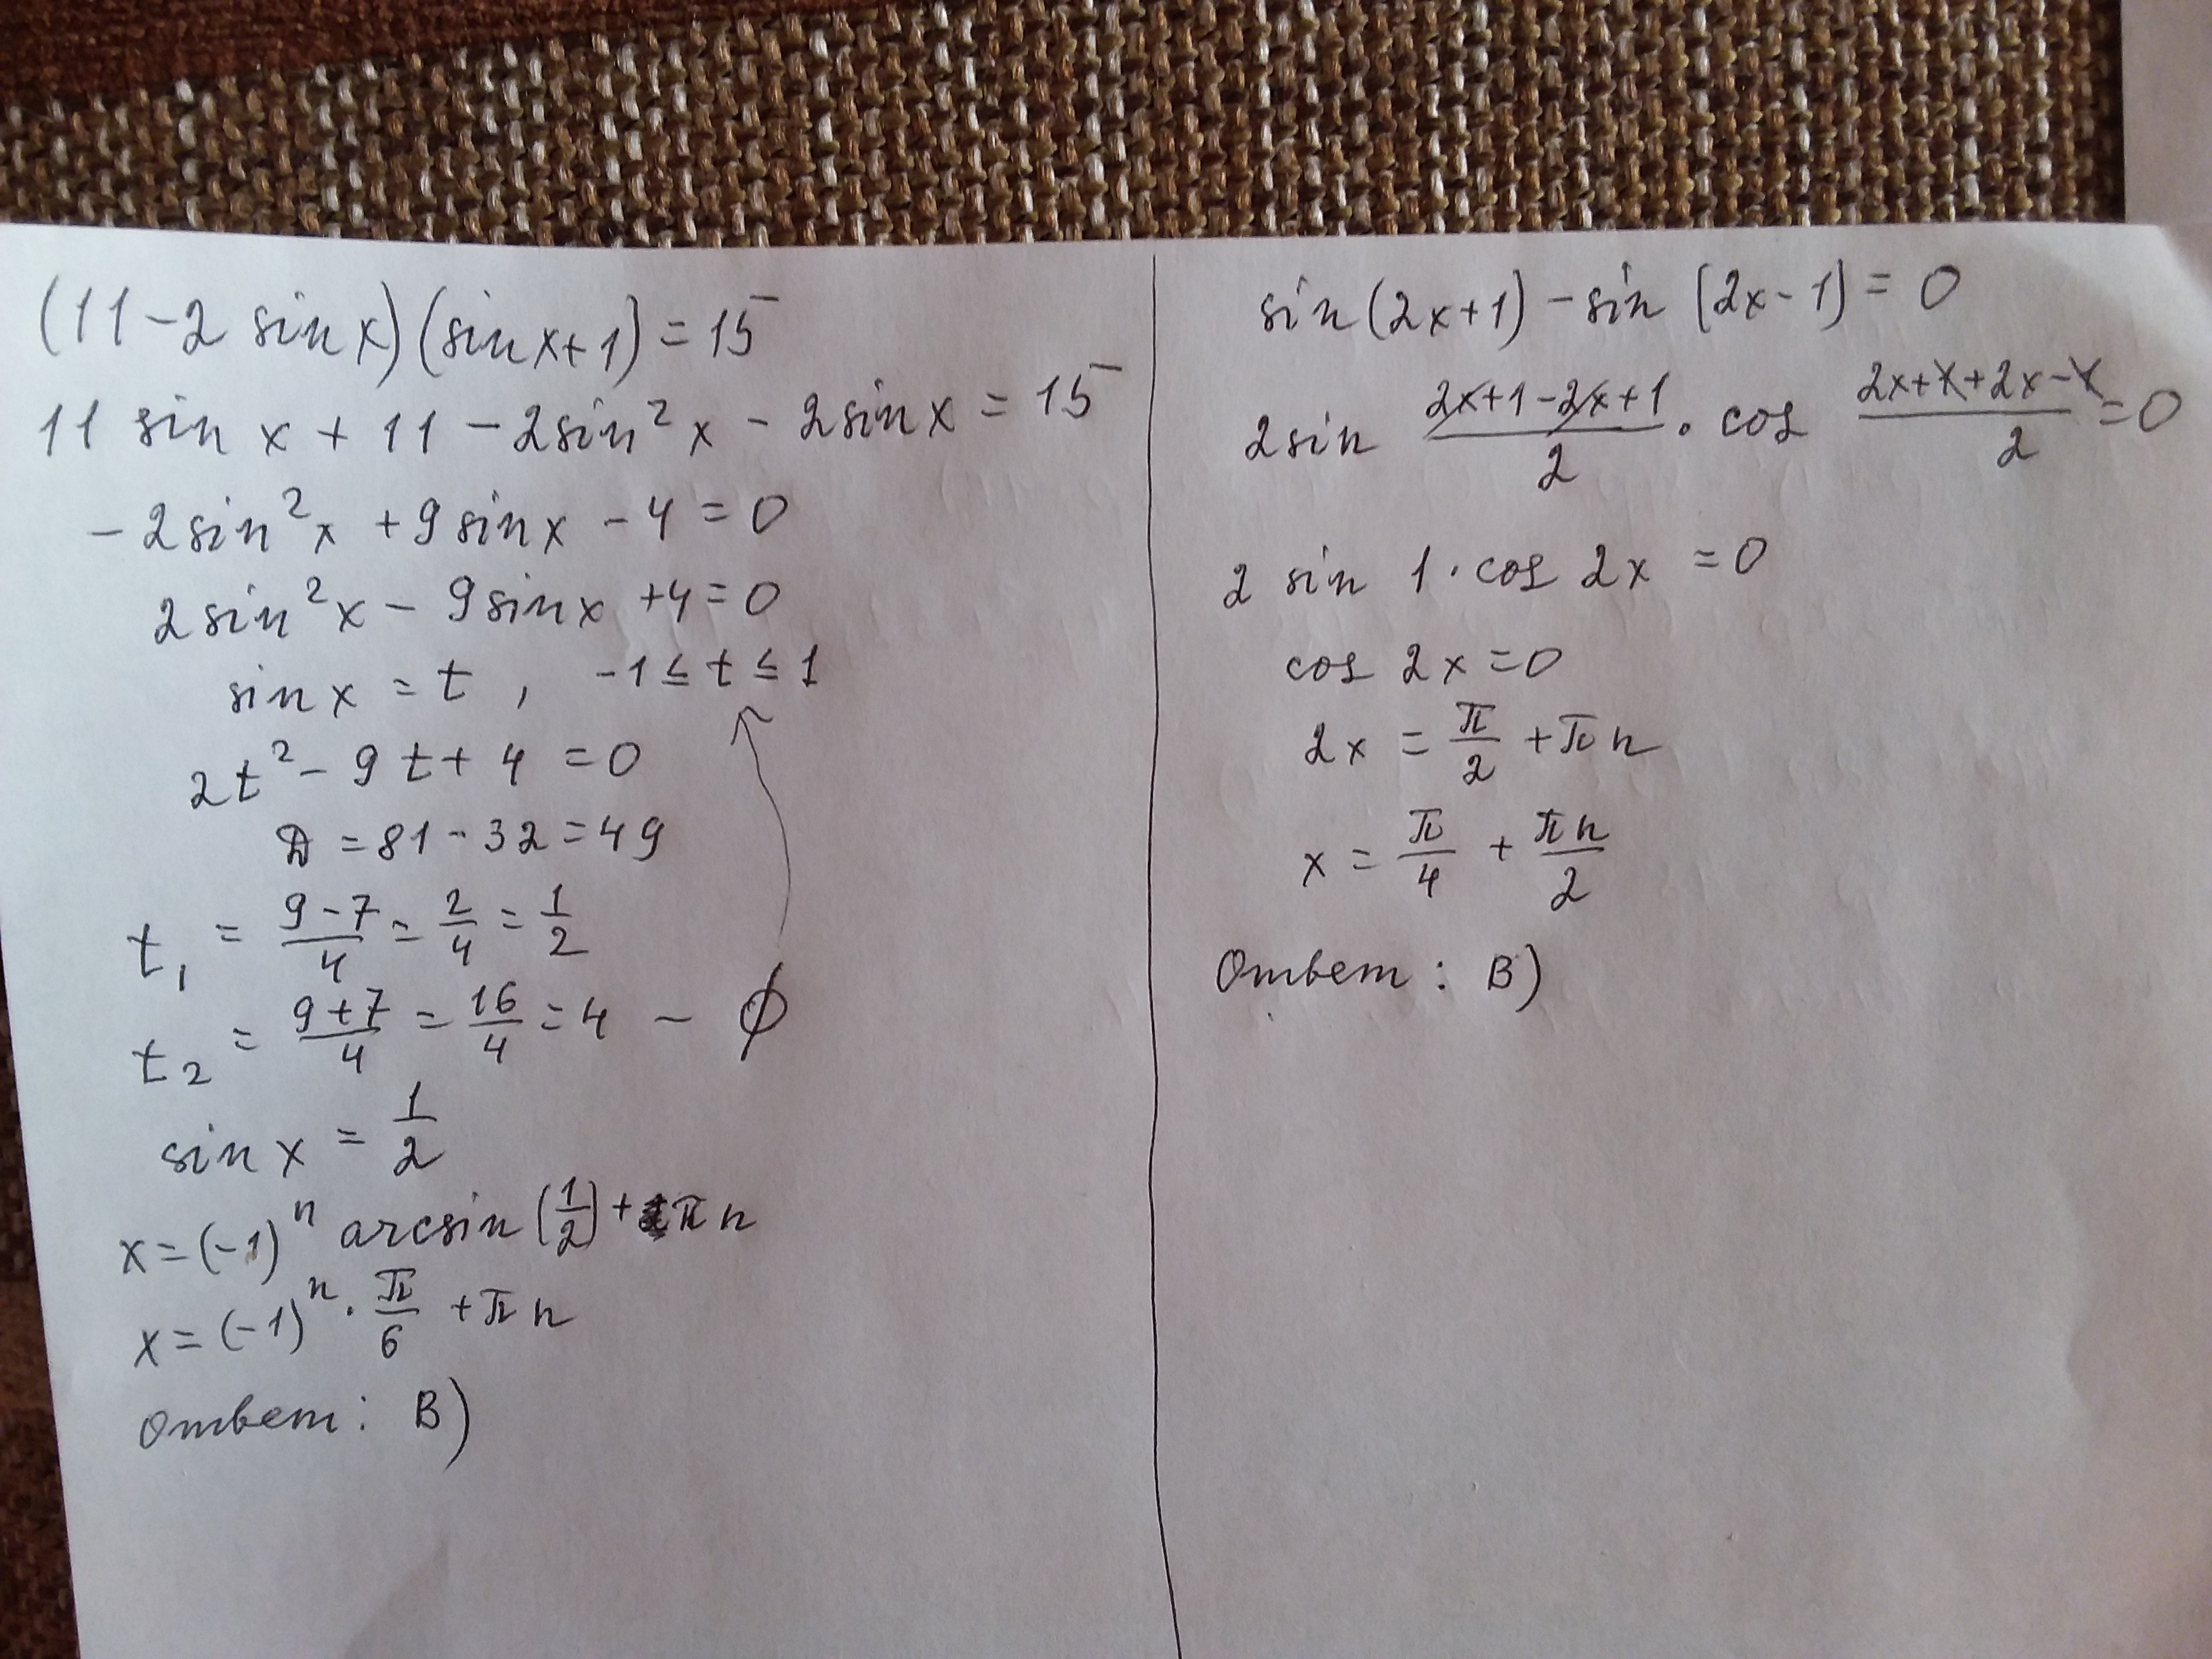 (11-2 sin x)(sin x+1)=15
11 sin x + 11 - 2sin²x - 2sin x = 15
-2sin²x +9sin x -4=0
2sin²x - 9sin x +4=0
sin x = t , -1 ≤ t ≤ 1
2t² - 9t + 4 = 0
D = 81 - 32 = 49
t₁ = (9-7)/4 = 2/4 = 1/2
t₂ = (9+7)/4 = 16/4 = 4 - ∅
sin x = 1/2
x = (-1)ⁿ arcsin (1/2) + πn
x = (-1)ⁿ · π/6 + πn
Ответ: В)
sin(2x+1) - sin(2x-1) = 0
2sin (2x+1-2x+1)/2 · cos (2x+1+2x-1)/2 = 0
2 sin 1 · cos 2x = 0
cos 2x = 0
2x = π/2 + πn
x = π/4 + πn/2
Ответ: В)